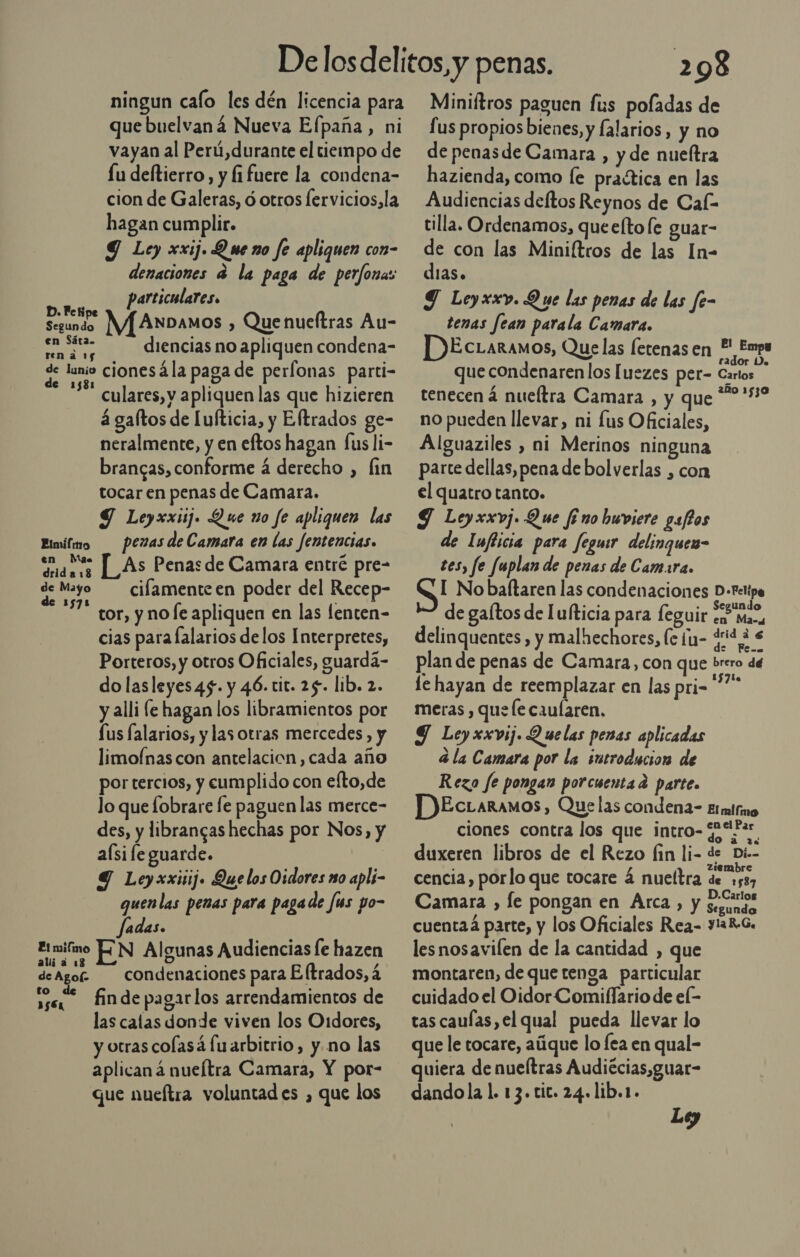 De los delitos, y penas. 298
ningun caſo les dén licencia para
que buelvan á Nueva Eſpaña, ni
vayan al Perú, durante el tiempo de
ſu deſtierro, y ſi fuere la condena-
cion de Galeras, ó otros ſervicios, la
hagan cumplir.
¶ Ley xxij. Que no ſe apliquen con-
denaciones à la paga de perſonas
particulares.
D. Felipe
Segundo
en Sãta-
ren à 15
de Iunio
de 1581
MANDAMOS, Que nueſtras Au-
diencias no apliquen condena-
ciones á la paga de perſonas parti-
culares, y apliquen las que hizieren
á gaſtos de Iuſticia, y Eſtrados ge-
neralmente, y en eſtos hagan ſus li-
branças, conforme á derecho, ſin
tocar en penas de Camara.
¶ Ley xxiij. Que no ſe apliquen las
penas de Camara en las ſentencias.
El miſmo
en Ma-
drid a 18
de Mayo
de 1572
LAs Penas de Camara entré pre-
ciſamente en poder del Recep-
tor, y no ſe apliquen en las ſenten-
cias para ſalarios de los Interpretes,
Porteros, y otros Oficiales, guardã-
do las leyes 45. y 46. tit. 25. lib. 2.
y alli ſe hagan los libramientos por
ſus ſalarios, y las otras mercedes, y
limoſnas con antelacion, cada año
por tercios, y cumplido con eſto, de
lo que ſobrare ſe paguen las merce-
des, y libranças hechas por Nos, y
aſsi ſe guarde.
¶ Ley xxiiij. Que los Oidores no apli-
quen las penas para paga de ſus po-
ſadas.
El miſmo
alli à 18
de Agoſ-
to de
1561
EN Algunas Audiencias ſe hazen
condenaciones para Eſtrados, á
fin de pagar los arrendamientos de
las caſas donde viven los Oidores,
y otras coſas á ſu arbitrio, y no las
aplican á nueſtra Camara, Y por-
que nueſtra voluntad es, que los
Miniſtros paguen ſus poſadas de
ſus propios bienes, y ſalarios, y no
de penas de Camara, y de nueſtra
hazienda, como ſe practica en las
Audiencias deſtos Reynos de Caſ-
tilla. Ordenamos, que eſto ſe guar-
de con las Miniſtros de las In-
dias.
¶ Ley xxv. Que las penas de las ſe-
tenas ſean para la Camara.
El Empe
rador D.
Carlos
año 1530
DECLARAMOS, Que las ſetenas en
que condenaren los Iuezes per-
tenecen á nueſtra Camara, y que
no pueden llevar, ni ſus Oficiales,
Alguaziles, ni Merinos ninguna
parte dellas, pena de bolverlas, con
el quatro tanto.
¶ Ley xxvj. Que ſi no huviere gaſtos
de Iuſticia para ſeguir delinquen-
tes, ſe ſuplan de penas de Camara.
D. Felipe
Segundo
en Ma-
drid à 6
de Fe--
brero de
1571.
SI No baſtaren las condenaciones
de gaſtos de Iuſticia para ſeguir
delinquentes, y malhechores, ſe ſu-
plan de penas de Camara, con que
ſe hayan de reemplazar en las pri-
meras, que ſe cauſaren.
¶ Ley xxvij. Que las penas aplicadas
à la Camara por la introducion de
Rezo ſe pongan por cuenta à parte.
El miſmo
en el Par
do à 26
de Di--
ziembre
de 1587
D. Carlos
Segundo
y la R.G.
DECLARAMOS, Que las condena-
ciones contra los que intro-
duxeren libros de el Rezo ſin li-
cencia, por lo que tocare á nueſtra
Camara, ſe pongan en Arca, y
cuenta á parte, y los Oficiales Rea-
les nos aviſen de la cantidad, que
montaren, de que tenga particular
cuidado el Oidor Comiſſario de eſ-
tas cauſas, el qual pueda llevar lo
que le tocare, aũque lo ſea en qual-
quiera de nueſtras Audiẽcias, guar-
dando la l. 13. tit. 24. lib. 1.
Ley